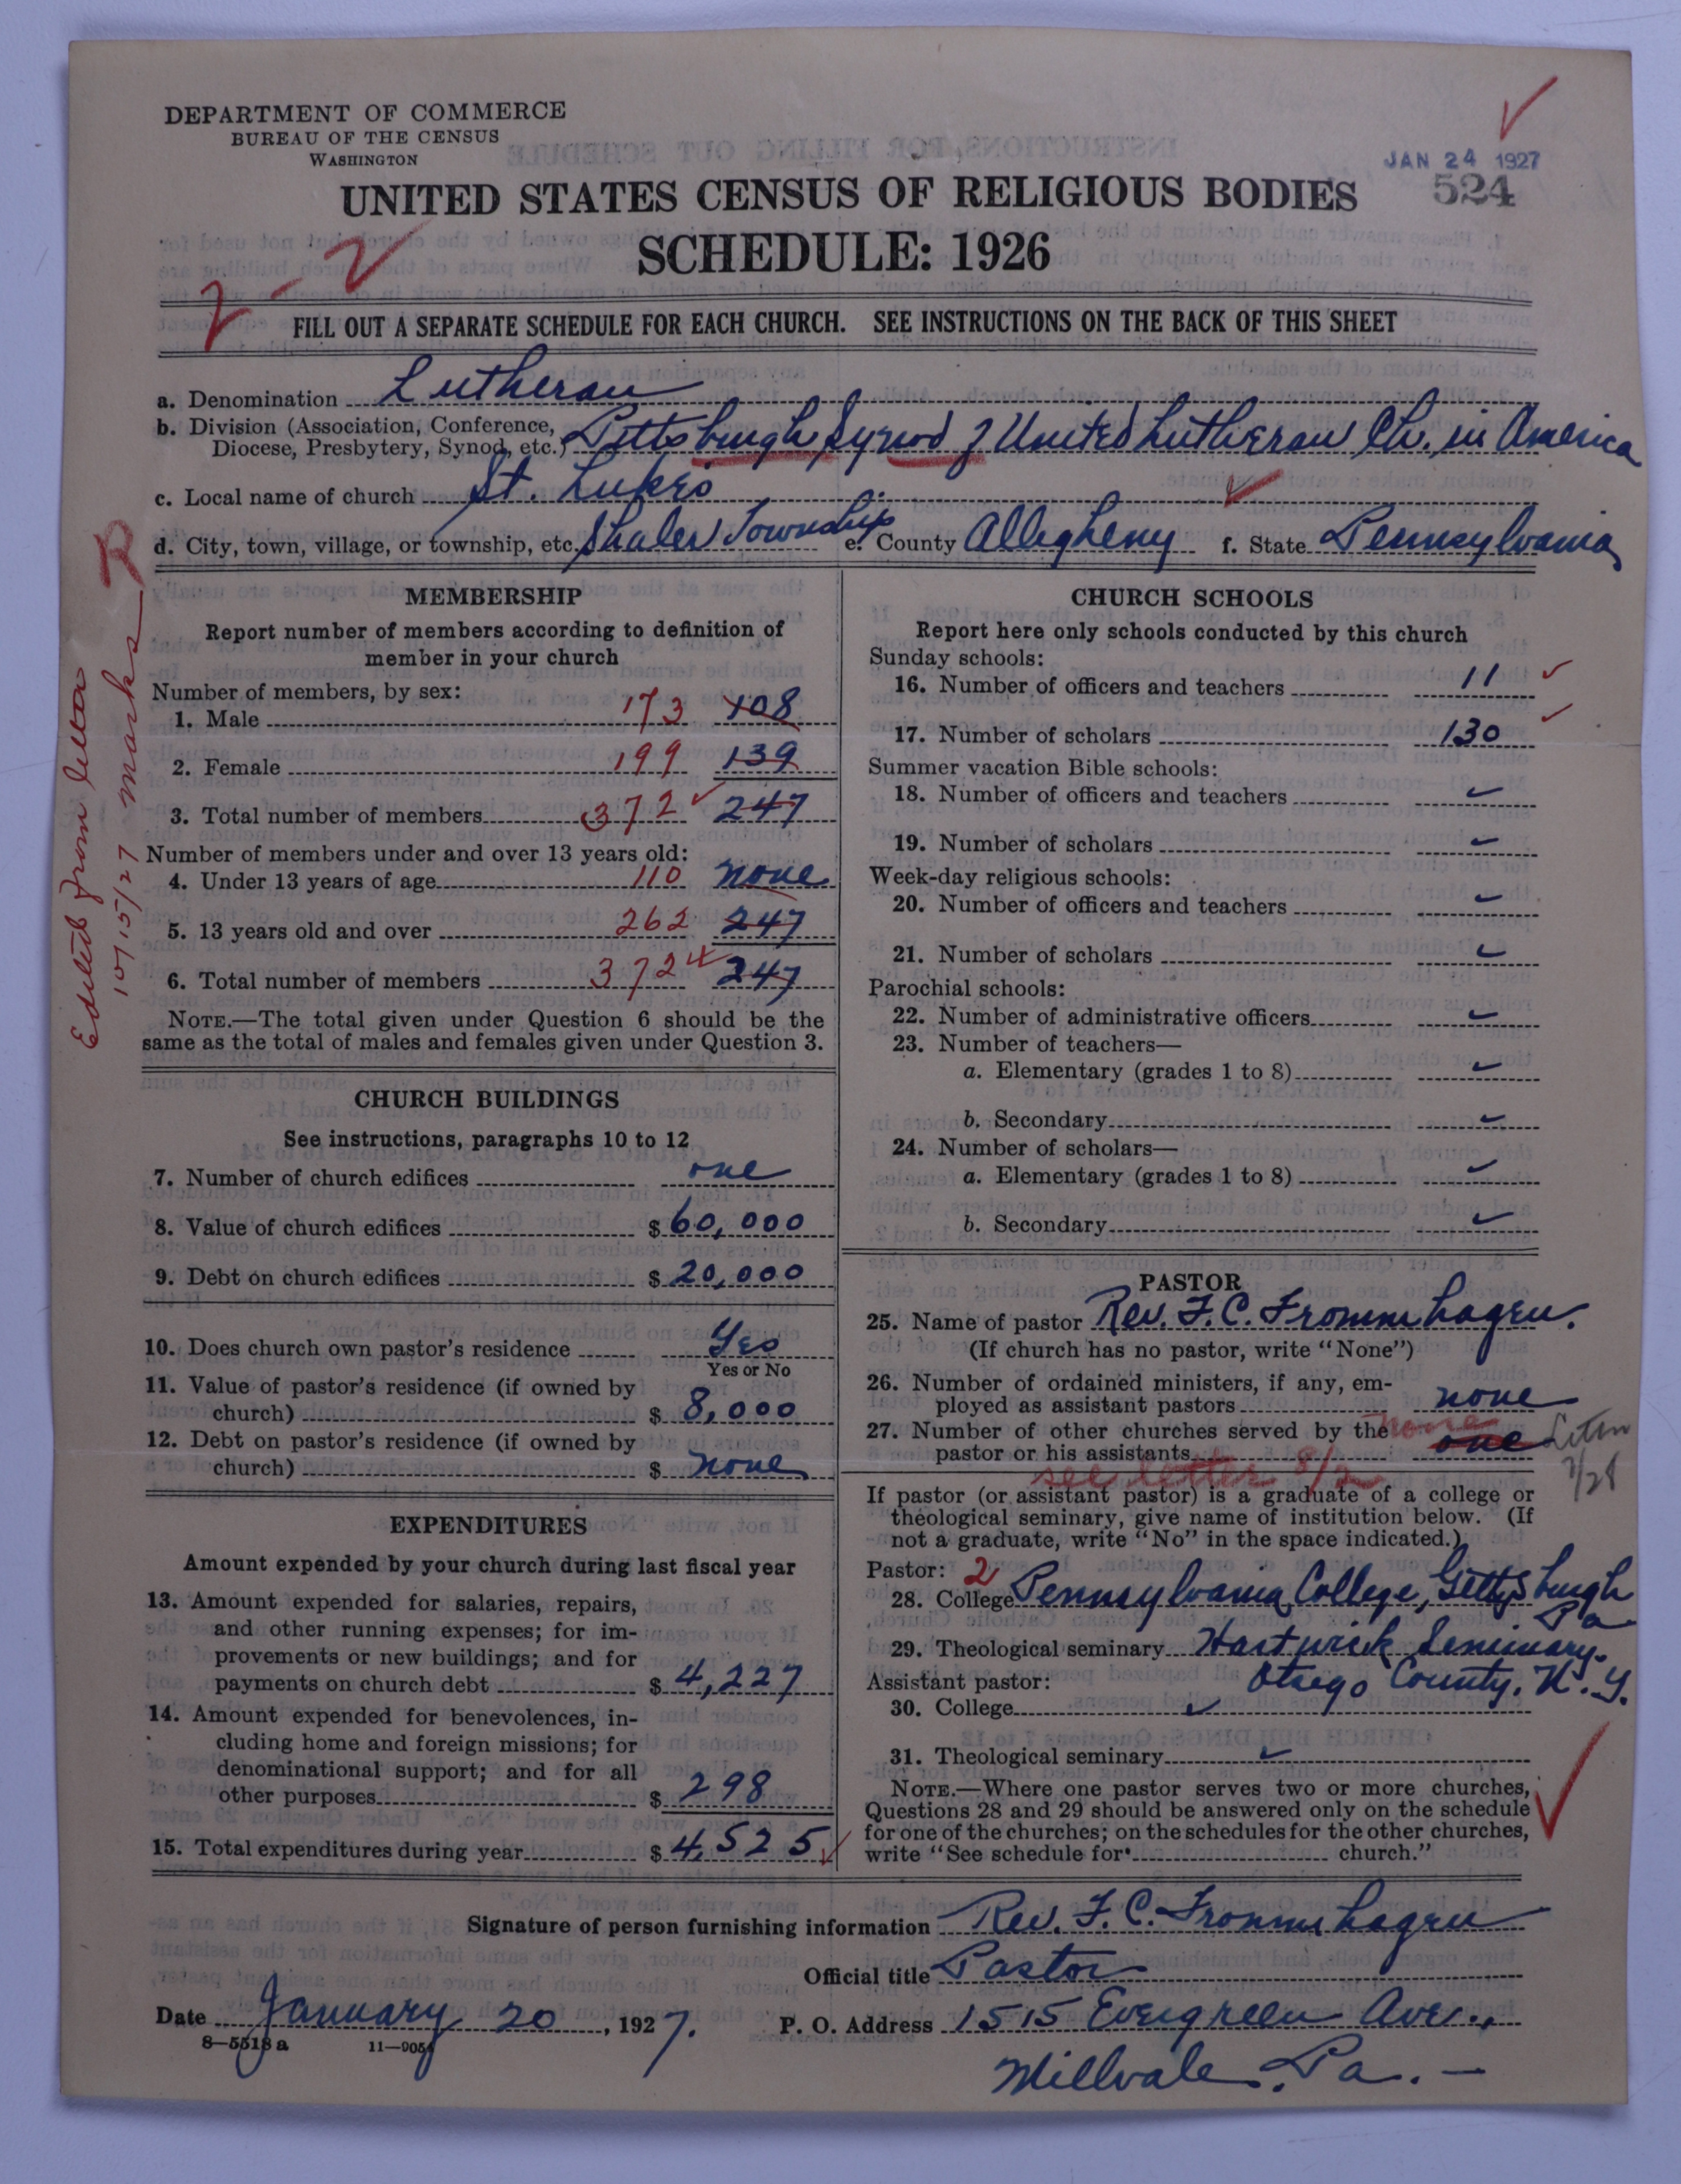 DEPARTMENT OF COMMERCE
BUREAU OF THE CENSUS
WASHINGTON
JAN 24 1927
524
UNITED STATES CENSUS OF RELIGIOUS BODIES
SCHEDULE: 1926
2-2
FILL OUT A SEPARATE SCHEDULE FOR EACH CHURCH. SEE INSTRUCTIONS ON THE BACK OF THIS SHEET
a. Denomination Lutheran
b. Division (Association, Conference, Diocese, Presbytery, Synod, etc.) Pittsburgh Synod of United Lutheran Ch. in America
c. Local name of church St. Luke's
d. City, town, village, or township, etc. Shaler Township e. County Allegheny f. State Pennsylvania
Edited from letter
10/15/27 Marks
MEMBERSHIP
Report number of members according to definition of
member in your church
Number of members, by sex:
1. Male 173 108
2. Female 199 139
3. Total number of members 372 247
Number of members under and over 13 years old:
4. Under 13 years of age 110 none
5. 13 years old and over 262 247
6. Total number of members 372 247
NOTE.—The total given under Question 6 should be the
same as the total of males and females given under Question 3.
CHURCH BUILDINGS
See instructions, paragraphs 10 to 12
7. Number of church edifices one
8. Value of church edifices $ 60,000
9. Debt on church edifices $ 20,000
10. Does church own pastor's residence Yes
Yes or No
11. Value of pastor's residence (if owned by
church) $ 8,000
12. Debt on pastor's residence (if owned by
church) $ none
EXPENDITURES
Amount expended by your church during last fiscal year
13. Amount expended for salaries, repairs,
and other running expenses; for im-
provements or new buildings; and for
payments on church debt $ 4,227
14. Amount expended for benevolences, in-
cluding home and foreign missions; for
denominational support; and for all
other purposes $ 298
15. Total expenditures during year $ 4,525
CHURCH SCHOOLS
Report here only schools conducted by this church
Sunday schools:
16. Number of officers and teachers 11
17. Number of scholars 130
Summer vacation Bible schools:
18. Number of officers and teachers
19. Number of scholars
Week-day religious schools:
20. Number of officers and teachers
21. Number of scholars
Parochial schools:
22. Number of administrative officers
23. Number of teachers—
a. Elementary (grades 1 to 8)
b. Secondary
24. Number of scholars—
a. Elementary (grades 1 to 8)
b. Secondary
PASTOR
25. Name of pastor Rev. F. C. Frommhagen.
(If church has no pastor, write "None")
26. Number of ordained ministers, if any, em-
ployed as assistant pastors none
27. Number of other churches served by the none
pastor or his assistants one
see letter 8/2
If pastor (or assistant pastor) is a graduate of a college or
theological seminary, give name of institution below. (If
not a graduate, write "No" in the space indicated.)
Pastor: 2
28. College Pennsylvania College, Gettysburgh
Pa
29. Theological seminary Hartwick Seminary.
Assistant pastor: Otsego County, N. Y.
30. College
31. Theological seminary
NOTE.—Where one pastor serves two or more churches,
Questions 28 and 29 should be answered only on the schedule
for one of the churches; on the schedules for the other churches,
write "See schedule for church."
Signature of person furnishing information Rev. F. C. Frommhagen
Official title Pastor
Date January 20, 1927. P. O. Address 1515 Evergreen Ave.,
8-5518a 11-9054
Millvale, Pa. —